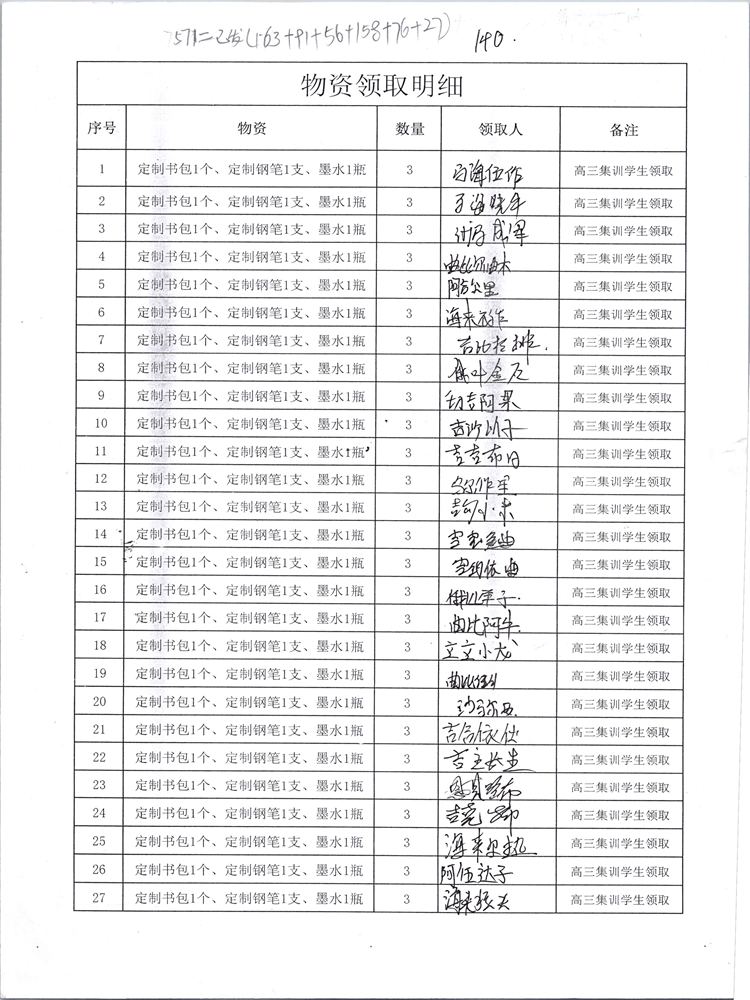 140.
物资领取明细
序号 物资 数量 领取人 备注
1 定制书包1个、定制钢笔1支、墨水1瓶 3 马海伍作 高三集训学生领取
2 定制书包1个、定制钢笔1支、墨水1瓶 3 高三集训学生领取
3 定制书包1个、定制钢笔1支、墨水1瓶 3 高三集训学生领取
4 定制书包1个、定制钢笔1支、墨水1瓶 3 高三集训学生领取
5 定制书包1个、定制钢笔1支、墨水1瓶 3 高三集训学生领取
6 定制书包1个、定制钢笔1支、墨水1瓶 3 高三集训学生领取
7 定制书包1个、定制钢笔1支、墨水1瓶 3 高三集训学生领取
8 定制书包1个、定制钢笔1支、墨水1瓶 3 高三集训学生领取
9 定制书包1个、定制钢笔1支、墨水1瓶 3 高三集训学生领取
10 定制书包1个、定制钢笔1支、墨水1瓶 3 高三集训学生领取
11 定制书包1个、定制钢笔1支、墨水1瓶 3 吉吉布日 高三集训学生领取
12 定制书包1个、定制钢笔1支、墨水1瓶 3 高三集训学生领取
13 定制书包1个、定制钢笔1支、墨水1瓶 3 高三集训学生领取
14 定制书包1个、定制钢笔1支、墨水1瓶 3 高三集训学生领取
15 定制书包1个、定制钢笔1支、墨水1瓶 3 高三集训学生领取
16 定制书包1个、定制钢笔1支、墨水1瓶 3 高三集训学生领取
17 定制书包1个、定制钢笔1支、墨水1瓶 3 曲比阿牛 高三集训学生领取
18 定制书包1个、定制钢笔1支、墨水1瓶 3 立立小龙 高三集训学生领取
19 定制书包1个、定制钢笔1支、墨水1瓶 3 高三集训学生领取
20 定制书包1个、定制钢笔1支、墨水1瓶 3 高三集训学生领取
21 定制书包1个、定制钢笔1支、墨水1瓶 3 高三集训学生领取
22 定制书包1个、定制钢笔1支、墨水1瓶 3 吉立长生 高三集训学生领取
23 定制书包1个、定制钢笔1支、墨水1瓶 3 高三集训学生领取
24 定制书包1个、定制钢笔1支、墨水1瓶 3 高三集训学生领取
25 定制书包1个、定制钢笔1支、墨水1瓶 3 高三集训学生领取
26 定制书包1个、定制钢笔1支、墨水1瓶 3 阿伍达子 高三集训学生领取
27 定制书包1个、定制钢笔1支、墨水1瓶 3 高三集训学生领取